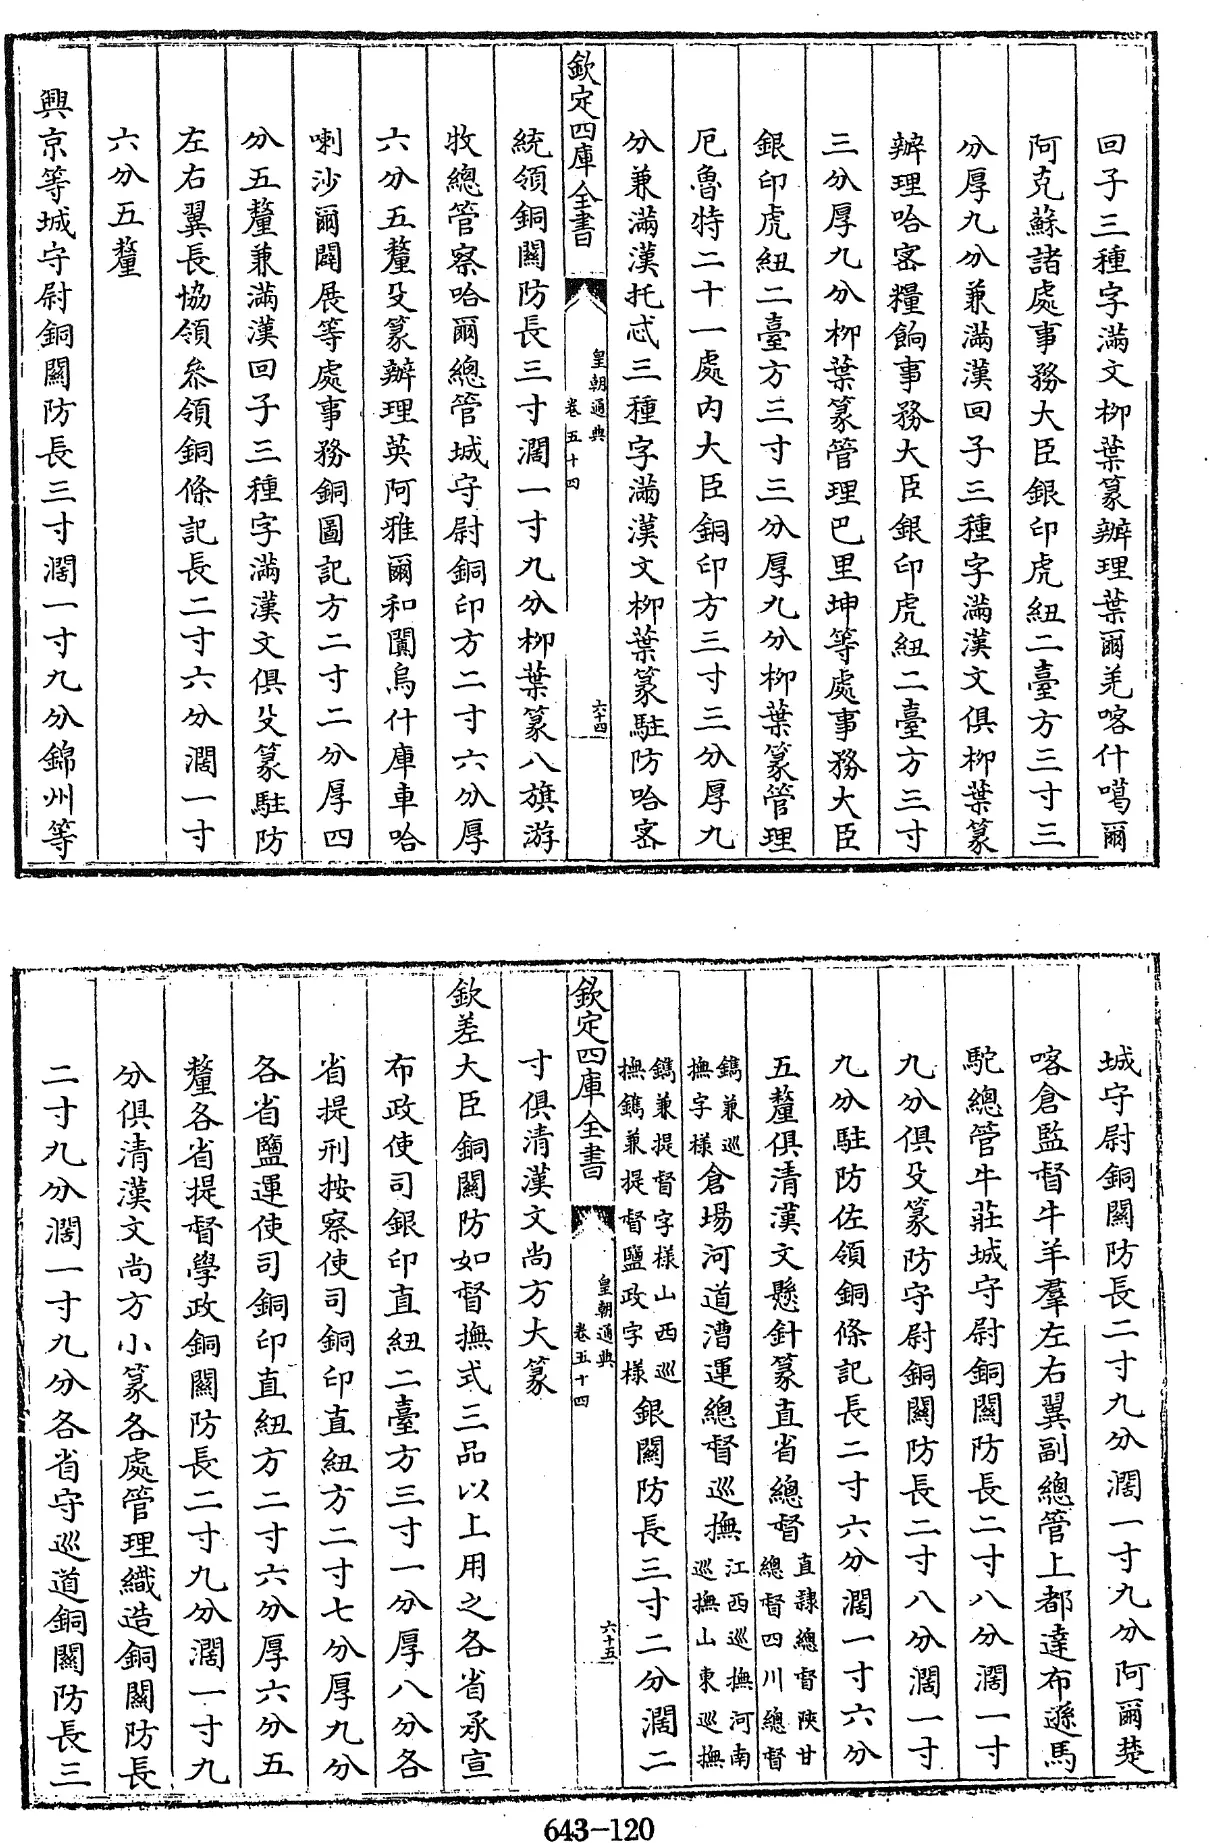 回子三種字滿文柳葉篆辦理葉爾羌喀什噶爾
阿克蘇諸處事務大臣銀印虎紐二臺方三寸三
分厚九分兼滿漢回子三種字滿漢文俱柳葉篆
辦理哈宻糧餉事務大臣銀印虎紐二臺方三寸
三分厚九分柳葉篆管理巴里坤等處事務大臣
銀印虎紐二臺方三寸三分厚九分柳葉篆管理
厄魯特二十一處内大臣銅印方三寸三分厚九
分兼滿漢托忒三種字滿漢文柳葉篆駐防哈宻
欽定四庫全書
皇朝通典
卷五十四
六十四
統領銅關防長三寸濶一寸九分柳葉篆八旗游
牧總管察哈爾總管城守尉銅印方二寸六分厚
六分五釐殳篆辦理英阿雅爾和闐烏什庫車哈
喇沙爾闢展等處事務銅圖記方二寸二分厚四
分五釐兼滿漢回子三種字滿漢文俱殳篆駐防
左右翼長協領叅領銅條記長二寸六分濶一寸
六分五釐
興京等城守尉銅關防長三寸濶一寸九分錦州等
城守尉銅關防長二寸九分濶一寸九分阿爾楚
喀倉監督牛羊羣左右翼副總管上都達布遜馬
駝總管牛莊城守尉銅關防長二寸八分濶一寸
九分俱殳篆防守尉銅關防長二寸八分濶一寸
九分駐防佐領銅條記長二寸六分濶一寸六分
五釐俱清漢文懸針篆直省總督直隸總督陜甘
總督四川總督
鐫兼巡
撫字様倉場河道漕運總督巡撫江西巡撫河南
巡撫山東巡撫
鐫兼提督字様山西巡
撫鐫兼提督鹽政字様銀關防長三寸二分濶二
欽定四庫全書
皇朝通典
卷五十四
六十五
寸俱清漢文尚方大篆
欽差大臣銅關防如督撫式三品以上用之各省承宣
布政使司銀印直紐二臺方三寸一分厚八分各
省提刑按察使司銅印直紐方二寸七分厚九分
各省鹽運使司銅印直紐方二寸六分厚六分五
釐各省提督學政銅關防長二寸九分濶一寸九
分俱清漢文尚方小篆各處管理織造銅關防長
二寸九分濶一寸九分各省守巡道銅關防長三
643-120